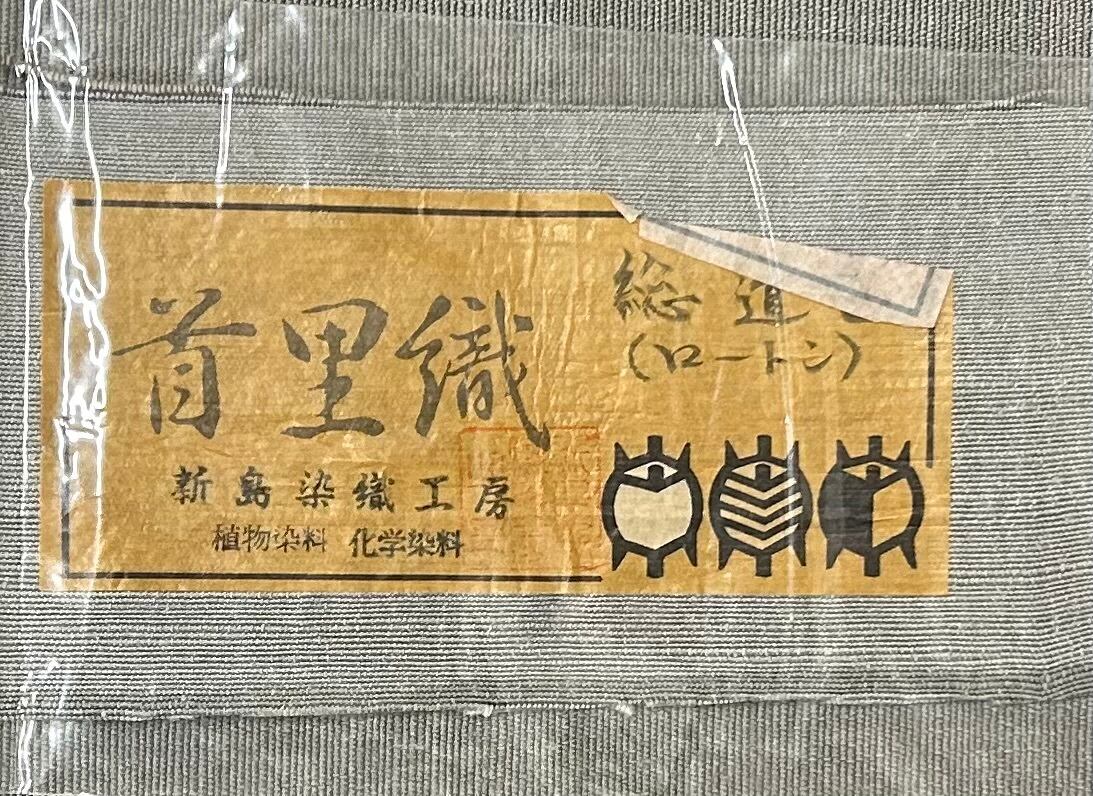 首里織
総道
(ロートン)
新島染織工房
植物染料 化学染料